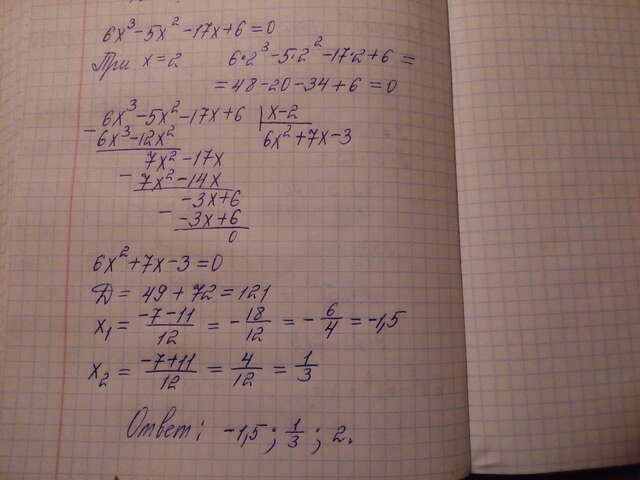 6x³-5x²-17x+6=0
При x=2 6·2³-5·2²-17·2+6=
=48-20-34+6=0
6x³-5x²-17x+6 |x-2
-6x³-12x² 6x²+7x-3
7x²-17x
-7x²-14x
-3x+6
- -3x+6
0
6x²+7x-3=0
D=49+72=121
x₁=(-7-11)/12=-18/12=-6/4=-1,5
x₂=(-7+11)/12=4/12=1/3
Ответ: -1,5; 1/3; 2.